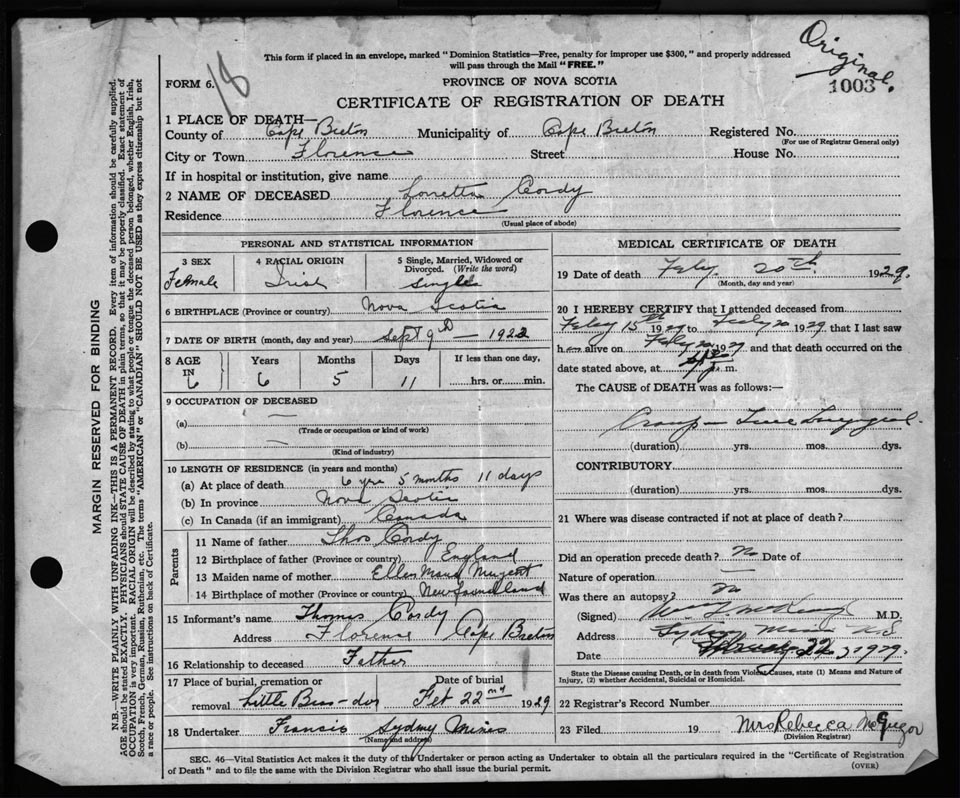 Original.
18
This form if placed in an envelope, marked "Dominion Statistics—Free, penalty for improper use $300," and properly addressed
will pass through the Mail "FREE."
FORM 6.
PROVINCE OF NOVA SCOTIA
1003
CERTIFICATE OF REGISTRATION OF DEATH
1 PLACE OF DEATH—
County of Cape Breton Municipality of Cape Breton Registered No.
(For use of Registrar General only)
City or Town Florence Street House No.
If in hospital or institution, give name
2 NAME OF DECEASED Lorretta Cordy
Residence Florence
(Usual place of abode)
PERSONAL AND STATISTICAL INFORMATION
3 SEX Female
4 RACIAL ORIGIN Irish
5 Single, Married, Widowed or Divorced. (Write the word) Single
6 BIRTHPLACE (Province or country) Nova Scotia
7 DATE OF BIRTH (month, day and year) Sept 9th 1922
8 AGE IN Years Months Days If less than one day,
6 6 5 11 hrs. or min.
9 OCCUPATION OF DECEASED
(a) —
(Trade or occupation or kind of work)
(b) —
(Kind of industry)
10 LENGTH OF RESIDENCE (in years and months)
(a) At place of death 6 yrs 5 months 11 days
(b) In province Nova Scotia
(c) In Canada (if an immigrant) Canada
Parents
11 Name of father Thos Cordy
12 Birthplace of father (Province or country) England
13 Maiden name of mother Ellen Nugent
14 Birthplace of mother (Province or country) Newfoundland
15 Informant's name Thomas Cordy
Address Florence Cape Breton
16 Relationship to deceased Father
17 Place of burial, cremation or removal Little Bras-dor
Date of burial Feb 22nd 1929
18 Undertaker Francis Sydney Mines
(Name and address)
MEDICAL CERTIFICATE OF DEATH
19 Date of death Feby. 20th 1929.
(Month, day and year)
20 I HEREBY CERTIFY that I attended deceased from
Feby 15th 1929 to Feby 20 1929, that I last saw
h er alive on Feby 20 1929 and that death occurred on the
date stated above, at m.
The CAUSE OF DEATH was as follows:—
Croup
(duration) yrs. mos. dys.
CONTRIBUTORY
(duration) yrs. mos. dys.
21 Where was disease contracted if not at place of death?
Did an operation precede death? No Date of
Nature of operation —
Was there an autopsy? No
(Signed) M.D.
Address Sydney Mines N.S.
Date 22 1929.
State the Disease causing Death, or in death from Violent Causes, state (1) Means and Nature of
Injury, (2) whether Accidental, Suicidal or Homicidal.
22 Registrar's Record Number
23 Filed 19 Mrs Rebecca McGregor
(Division Registrar)
SEC. 46—Vital Statistics Act makes it the duty of the Undertaker or person acting as Undertaker to obtain all the particulars required in the "Certificate of Registration
of Death" and to file the same with the Division Registrar who shall issue the burial permit.
(OVER)
MARGIN RESERVED FOR BINDING
N.B.—WRITE PLAINLY WITH UNFADING INK—THIS IS A PERMANENT RECORD. Every item of information should be carefully supplied.
AGE should be stated EXACTLY. PHYSICIANS should STATE CAUSE OF DEATH in plain terms, so that it may be properly classified. Exact statement of
OCCUPATION is very important. RACIAL ORIGIN will be described by stating to what people or tongue the deceased person belonged, whether English, Irish,
Scotch, French, German, Russian, Ruthenian, etc. The terms "AMERICAN" or "CANADIAN" SHOULD NOT BE USED as they express citizenship but not
a race or people. See instructions on back of Certificate.